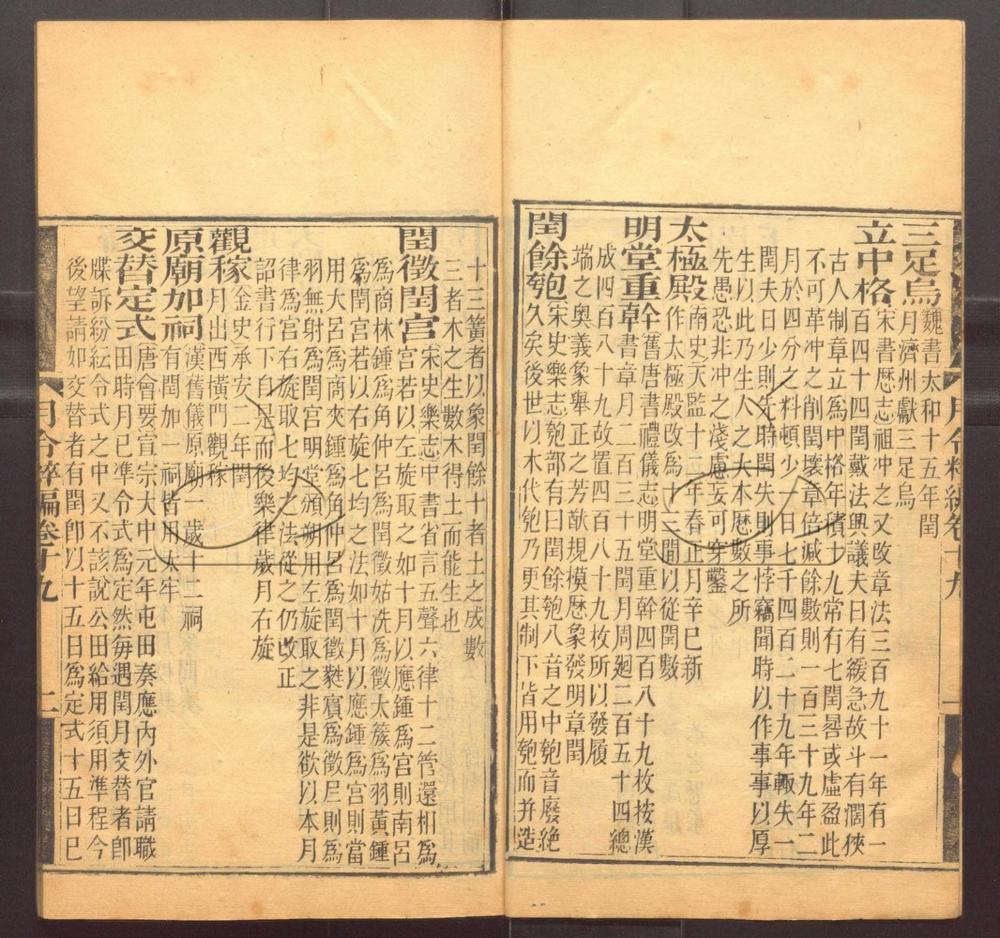 三足烏魏書太和十五年閏
月濟州獻三足烏
立中格宋書歷志祖沖之又改章法三百九十一年有一
百四十四閏戴法興議夫日有緩急故斗有濶狹
古人制章立為中格年積十九常有七閏晷或虛盈此
不可革沖之削閏壞章倍減餘數則一百三十九年二
月於四分之料頓少一日七千四百二十九年輙失一
閏夫日少則先時閏失則事悖竊聞時以作事事以厚
生以此乃生人之大本歷數之所
先愚恐非沖之淺慮妄可穿鑿
太極殿南史天監十二年春正月辛巳新
作太極殿改為十三間以從閏數
明堂重幹舊唐書禮儀志明堂重幹四百八十九枚按漢
書章月二百三十五閏月周廻二百五十四總
成四百八十九故置四百八十九枚所以發履
端之奧義象舉正之芳猷規模歷象發明章閏
閏餘匏宋史樂志匏部有曰閏餘匏八音之中匏音廢絶
久矣後世以木代匏乃更其制下皆用匏而并造
十三簧者以象閏餘十者土之成數
三者木之生數木得土而能生也
閏徵閏宫宋史樂志中書省言五聲六律十二管還相為
宫若以左旋取之如十月以應鍾為宫則南呂
為商林鍾為角仲呂為閏徵姑洗為徵太簇為羽黃鍾
為閏宫若以右旋七均之法如十月以應鍾為宫則當
用大呂為商夾鍾為角仲呂為閏徵蕤賓為徵夷則為
羽無射為閏宫明堂頒朔用左旋取之非是欲以本月
律為宫右旋取七均之法從之仍改正
詔書行下自是而後樂律歲月右旋
觀稼金史承安二年閏
月出西橫門觀稼
原廟加祠漢舊儀原廟一歲十二祠
有閏加一祠皆用太牢
交替定式唐會要宣宗大中元年屯田奏應内外官請職
田時月已準令式為定然毎遇閏月交替者即
牒訴紛紜令式之中又不該說公田給用須用準程今
後望請如交替者有閏即以十五日為定式十五日巳
月令粹編卷十九 二